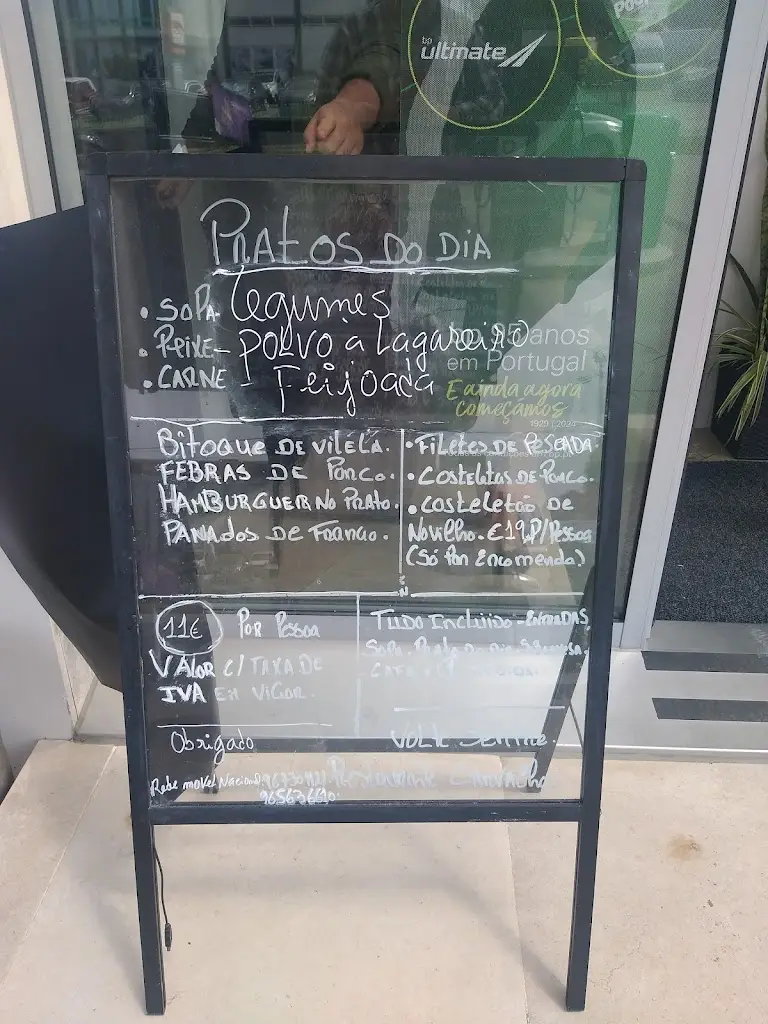 bp
ultimate
PRATOS DO DIA
• SOPA- Legumes
• PEIXE- POLVO à Lagareiro
• CARNE - Feijoada
95 anos
em Portugal
E ainda agora
começamos
1929 | 2024
BITOQUE DE VITELA.
FEBRAS DE PORCO.
HAMBURGUER NO PRATO.
PANADOS DE FRANGO.
• FILETES DE PESCADA.
• COSTELETAS DE PORCO.
• COSTELETÃO DE
NOVILHO. €19 P/PESSOA
(SÓ POR ENCOMENDA)
11€ POR PESSOA
VALOR C/ TAXA DE
IVA EM VIGOR.
TUDO INCLUÍDO - ENTRADAS
SOPA - PRATO DO DIA
Obrigado
VOLTE SEMPRE.
Rede movel Nacional.
965636610.